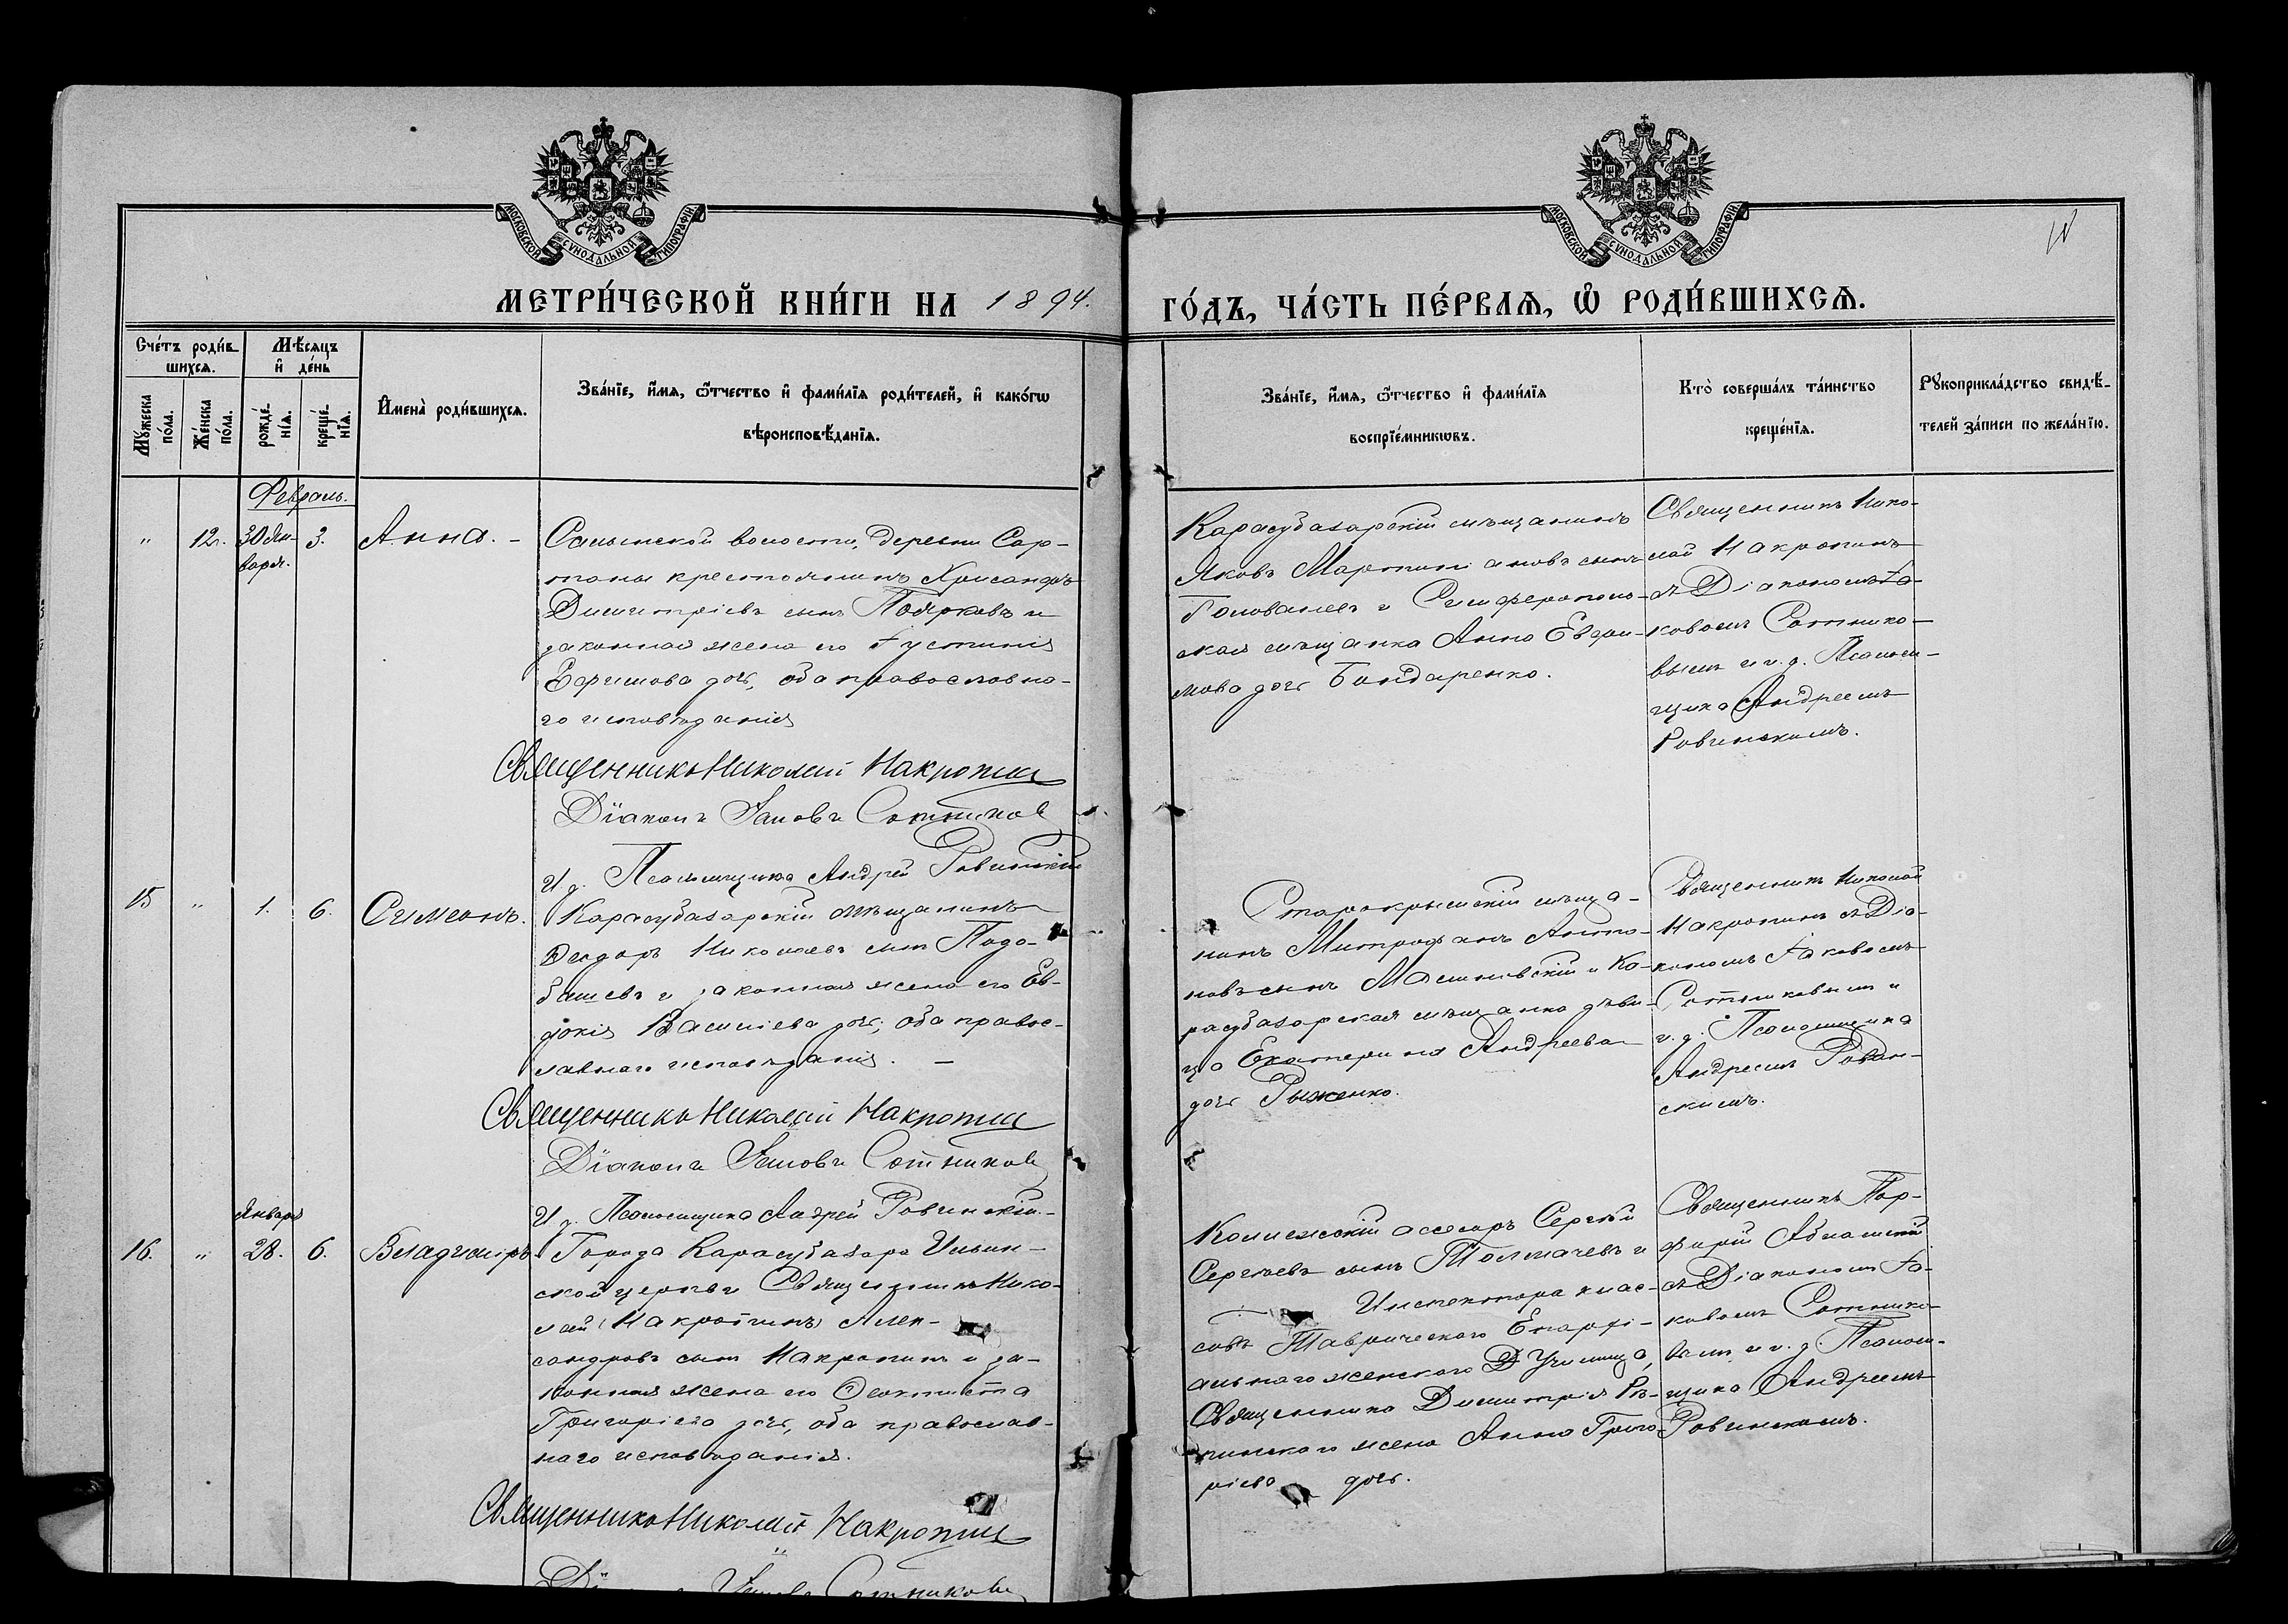 МОСКОВСКОЙ СѴНОДАЛЬНОЙ ТИПОГРАФІИ
МОСКОВСКОЙ СѴНОДАЛЬНОЙ ТИПОГРАФІИ
МЕТРИ́ЧЕСКОЙ КНИ́ГИ НА 1894.
ГО́ДЪ, ЧА́СТЬ ПЕ́РВАЯ, Ѽ РОДИ́ВШИХСЯ.
Сче́тъ роди́в
шихся.
Мѣ́сяцъ
и҆ де́нь
Мꙋ́жеска
по́ла.
Же́нска
по́ла.
рожде́
нїя.
креще́
нїя.
И҆мена̀ роди́вшихся.
Зва́нїе, и҆́мя, ѻ҆́тчество и҆ фами́лїя роди́телей, и҆ како́гѡ
вѣроисповѣ́данїя.
Зва́нїе, и҆́мя, ѻ҆́тчество и҆ фами́лїя
воспрїе́мникѡвъ.
Кто̀ соверша́лъ та́инство
креще́нїя.
Рꙋкоприкла́дство свидѣ́-
телей за́писи по жела́нїю.
Февраль.
" 12. 30 Ян-
варя. 3. Анна. -
Салынской волости, деревни Сар-
таны крестьянинъ Хрисанфъ
Димитріевъ сынъ Поярковъ и
законная жена его Іустинія
Ефимова дочь, оба православна-
го исповѣданія
Священникъ Николай Макропин
Діаконъ Іаковъ Сотников
И. д. Псаломщика Андрей Ровинскій
Карасубазарскій мѣщанинъ
Яковъ Мартиніановъ сынъ
Голованев и Симферополь-
ская мѣщанка Анна Евфи-
мова дочь Бондаренко.
Священникъ Нико-
лай Макропинъ
съ Діакономъ Іа-
ковомъ Сотнико-
вымъ и и. д. Псалом-
щика Андреемъ
Ровинскимъ.
15 " 1. 6. Симеонъ.
Карасубазарскій мѣщанинъ
Ѳеодоръ Николаевъ сынъ Подо-
и законная жена его Ев-
докія Васильева дочь, оба правос-
лавнаго исповѣданія. -
Священникъ Николай Макропин
Діаконъ Іаковъ Сотников
И. д. Псаломщика Андрей Ровинскій.
Старокрымскій мѣща-
нинъ Митрофанъ Анто-
новъ сынъ и Ка-
расубазарская мѣщанка дѣви-
ца Екатерина Андреева
дочь Рыженко.
Священникъ Николай
Макропинъ съ Діа-
кономъ Іаковомъ
Сотниковымъ и
и. д. Псаломщика
Андреемъ Ровин-
скимъ.
Января
16. " 28. 6. Владиміръ
Города Карасубазара Ильин-
ской церкви Священникъ Нико-
лай (Макропинъ) Алек-
сандровъ сынъ Макропинъ и за-
конная жена его Ѳеоктиста
Григорьева дочь, оба православ-
наго исповѣданія.
Священникъ Николай Макропин
Іаковъ Сотниковъ
Коллежскій ассесоръ Сергѣй
Сергѣевъ сынъ Толмачевъ и
Инспектора клас-
совъ Таврическаго Епархі-
альнаго женскаго Училища,
Священника Димитрія Рѣ-
пинскаго жена Анна Григо-
рьева дочь.
Священникъ Пор-
фирій
съ Діакономъ Іа-
ковомъ Сотнико-
вымъ и и. д. Псалом-
щика Андреемъ
Ровинскимъ.